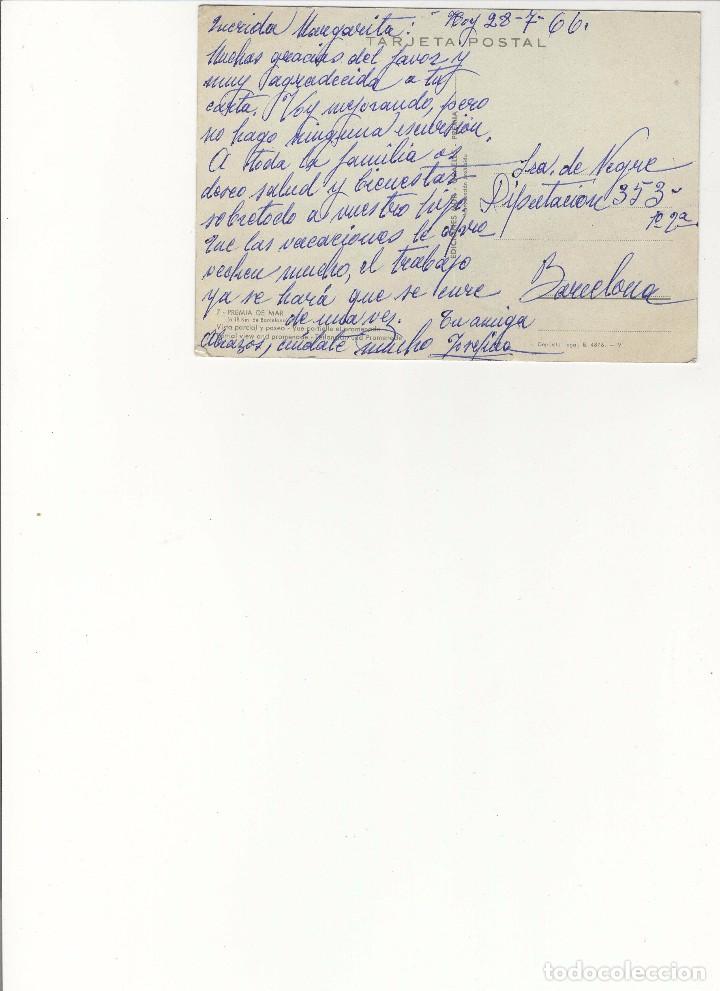 Querida Margarita: Hoy 28-7-66.
TARJETA POSTAL
Muchas gracias del favor y
muy agradecida a tu
carta. Voy mejorando, pero
no hago ninguna escursión.
A toda la familia os
deseo salud y bienestar
sobretodo a vuestro hijo
que las vacaciones le apro
vechen mucho, el trabajo
ya se hará que se cure
de una vez.
Abrazos, cuidate mucho
Tu amiga
Josefina
Sra. de Negre
Diputación 353
1º 2ª
Barcelona
7 - PREMIA DE MAR
Vista parcial y paseo - Vue partielle et promenade
Partial view and promenade
EDICIONES
PREMIA
todocoleccion